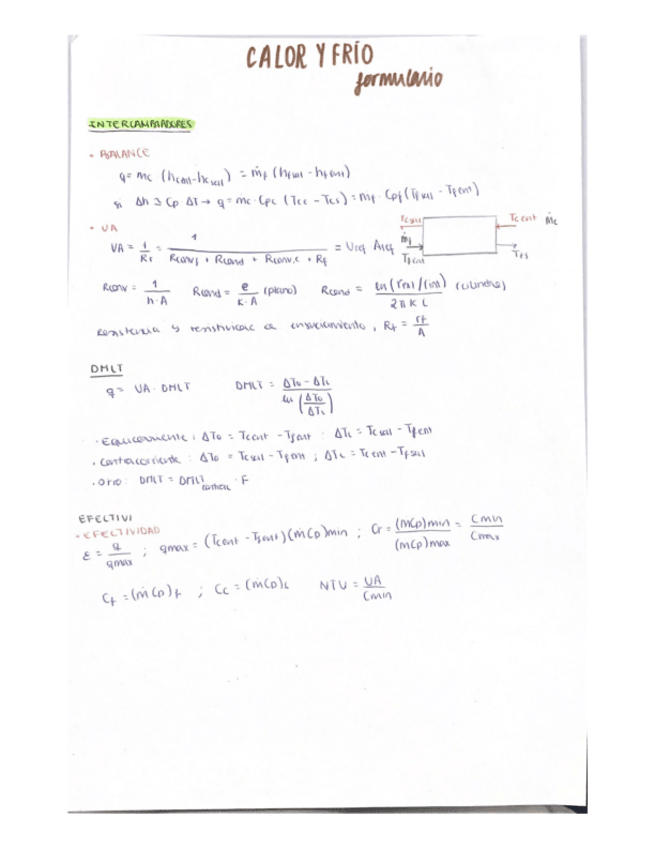 CALOR Y FRÍO
formulario
INTERCAMBIADORES
• BALANCE
q = ṁc (hcent - hcsal) = ṁf (hfsal - hfent)
si Δh ≃ Cp ΔT → q = mc · Cpc (Tce - Tcs) = mf · Cpf (Tfsal - Tfent)
• UA
Tcsal Tcent ṁc
ṁf Tfent Tfs
UA = 1/Rt = 1/(Rconvf + Rcond + Rconv,c + Rf) = Uref Aref
Rconv = 1/(h·A) Rcond = e/(K·A) (plano) Rcond = ln(rext/rint)/(2πKL) (cilindro)
Resistencia y resistividad de ensuciamiento, Rf = rf/A
DMLT
q = UA · DMLT DMLT = (ΔT0 - ΔTL)/ln(ΔT0/ΔTL)
· Equicorriente : ΔT0 = Tcent - Tfent : ΔTL = Tcsal - Tfsal
· Contracorriente : ΔT0 = Tcsal - Tfent ; ΔTL = Tcent - Tfsal
· Otro : DMLT = DMLT · F
EFECTIVI
• EFECTIVIDAD
ε = q/qmax ; qmax = (Tcent - Tfent)(ṁCp)min ; Cr = (ṁCp)min/(ṁCp)max = Cmin/Cmax
Cf = (ṁCp)f ; Cc = (ṁCp)c NTU = UA/Cmin